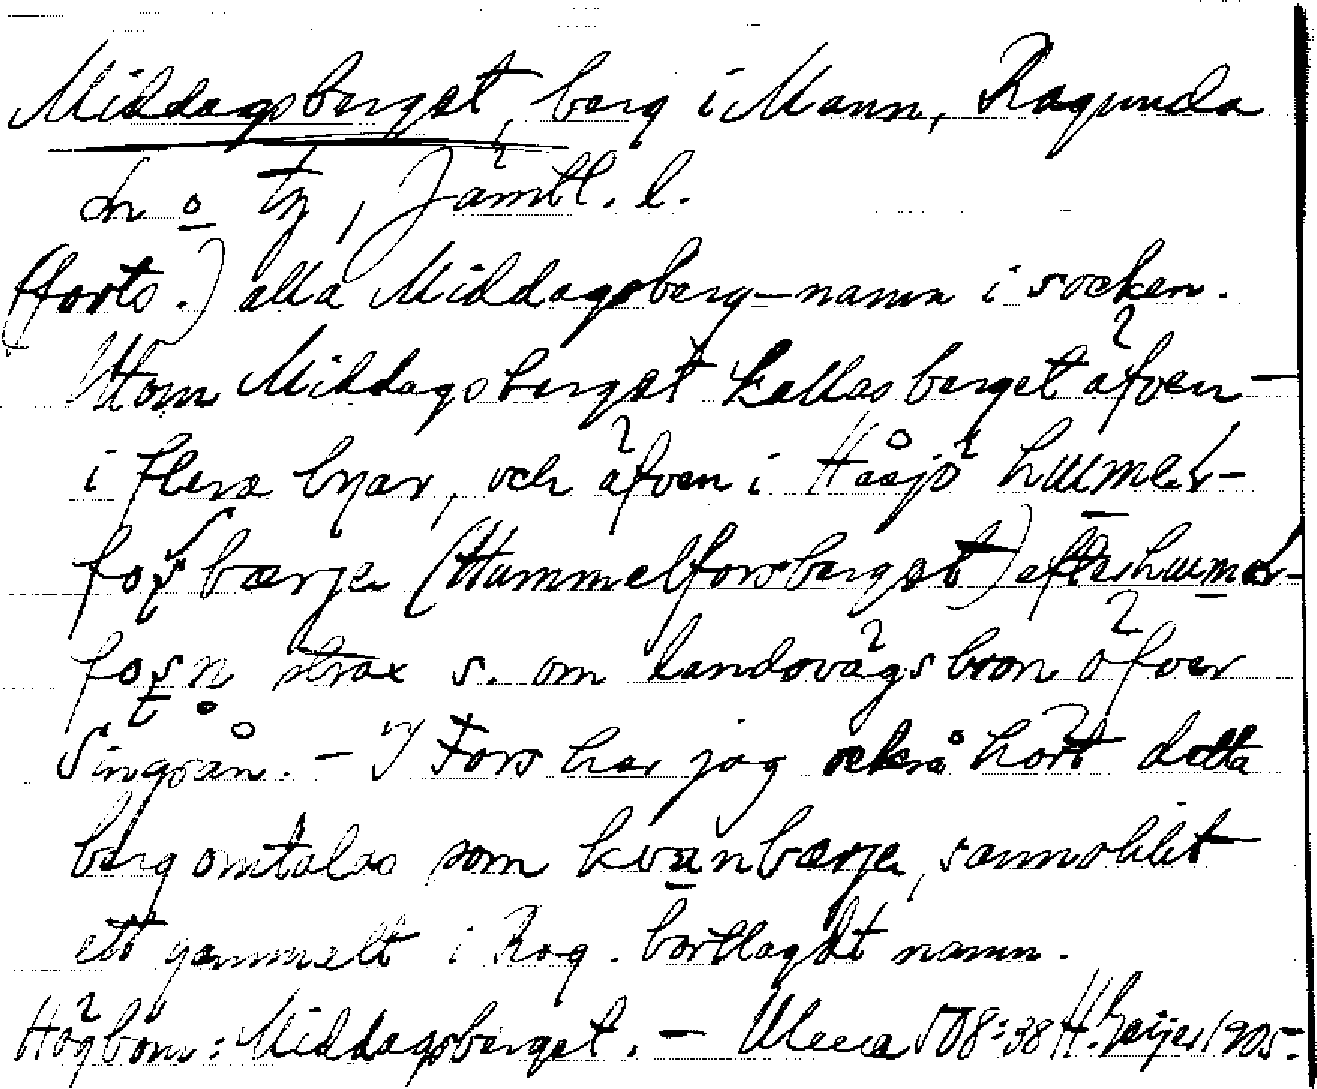 Middagsberget, berg i Mann, Ragunda
sn o tg, Jämtl. l.
(forts.) alla Middagsberg-namn i socken.
Utom Middagsberget kallas berget äfven -
i flera byar, och äfven i Håsjö humel-
fosbærje (Hammelforsberget) efter humel-
fosn strax s. om landsvägsbron öfver
Singsån. - I Fors har jag också hört detta
berg omtalas som kvanbærje, sannolikt
ett gammelt i Rag. bortlagdt namn.
Högbom: Middagsberget. - Ulma 508:38 H. Geijer 1905.